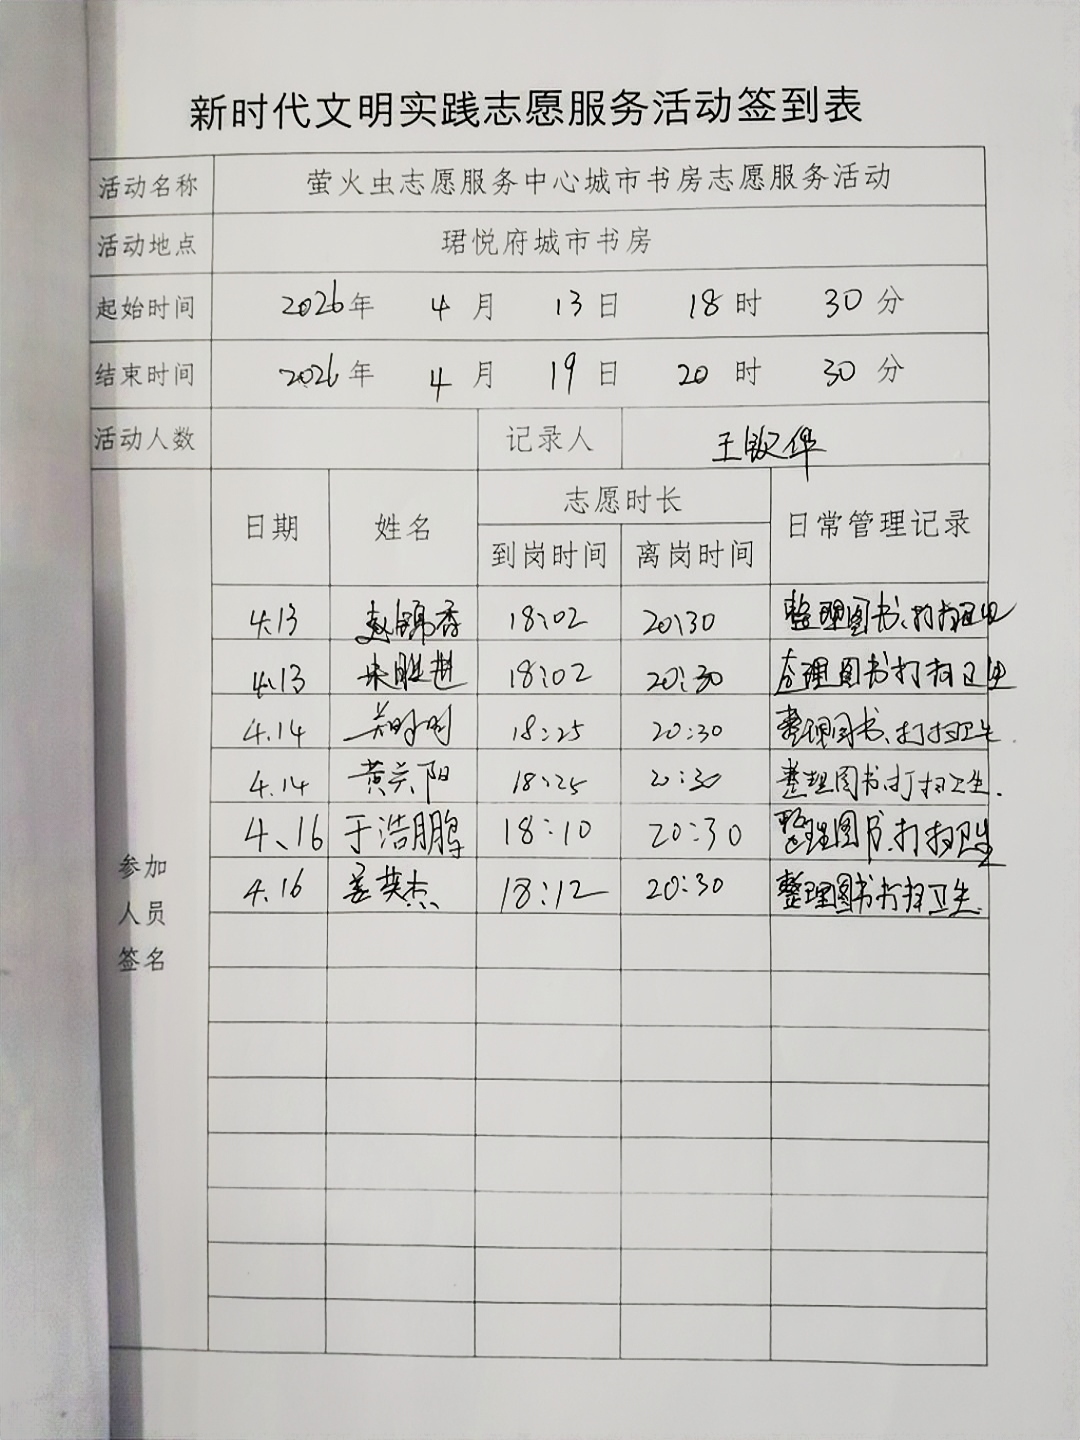 新时代文明实践志愿服务活动签到表
活动名称 萤火虫志愿服务中心城市书房志愿服务活动
活动地点 珺悦府城市书房
起始时间 2026年 4月 13日 18时 30分
结束时间 2026年 4月 19日 20时 30分
活动人数 记录人 王敬伟
日期 姓名 志愿时长 日常管理记录
到岗时间 离岗时间
4.13 赵锦香 18:02 20:30 整理图书、打扫卫生
4.13 宋胜进 18:02 20:30 整理图书打扫卫生
4.14 18:25 20:30 整理图书、打扫卫生.
4.14 黄六阳 18:25 20:30 整理图书.打扫卫生.
4、16 于浩鹏 18:10 20:30 整理图书.打扫卫生
4.16 姜英杰 18:12 20:30 整理图书打扫卫生.
参加
人员
签名